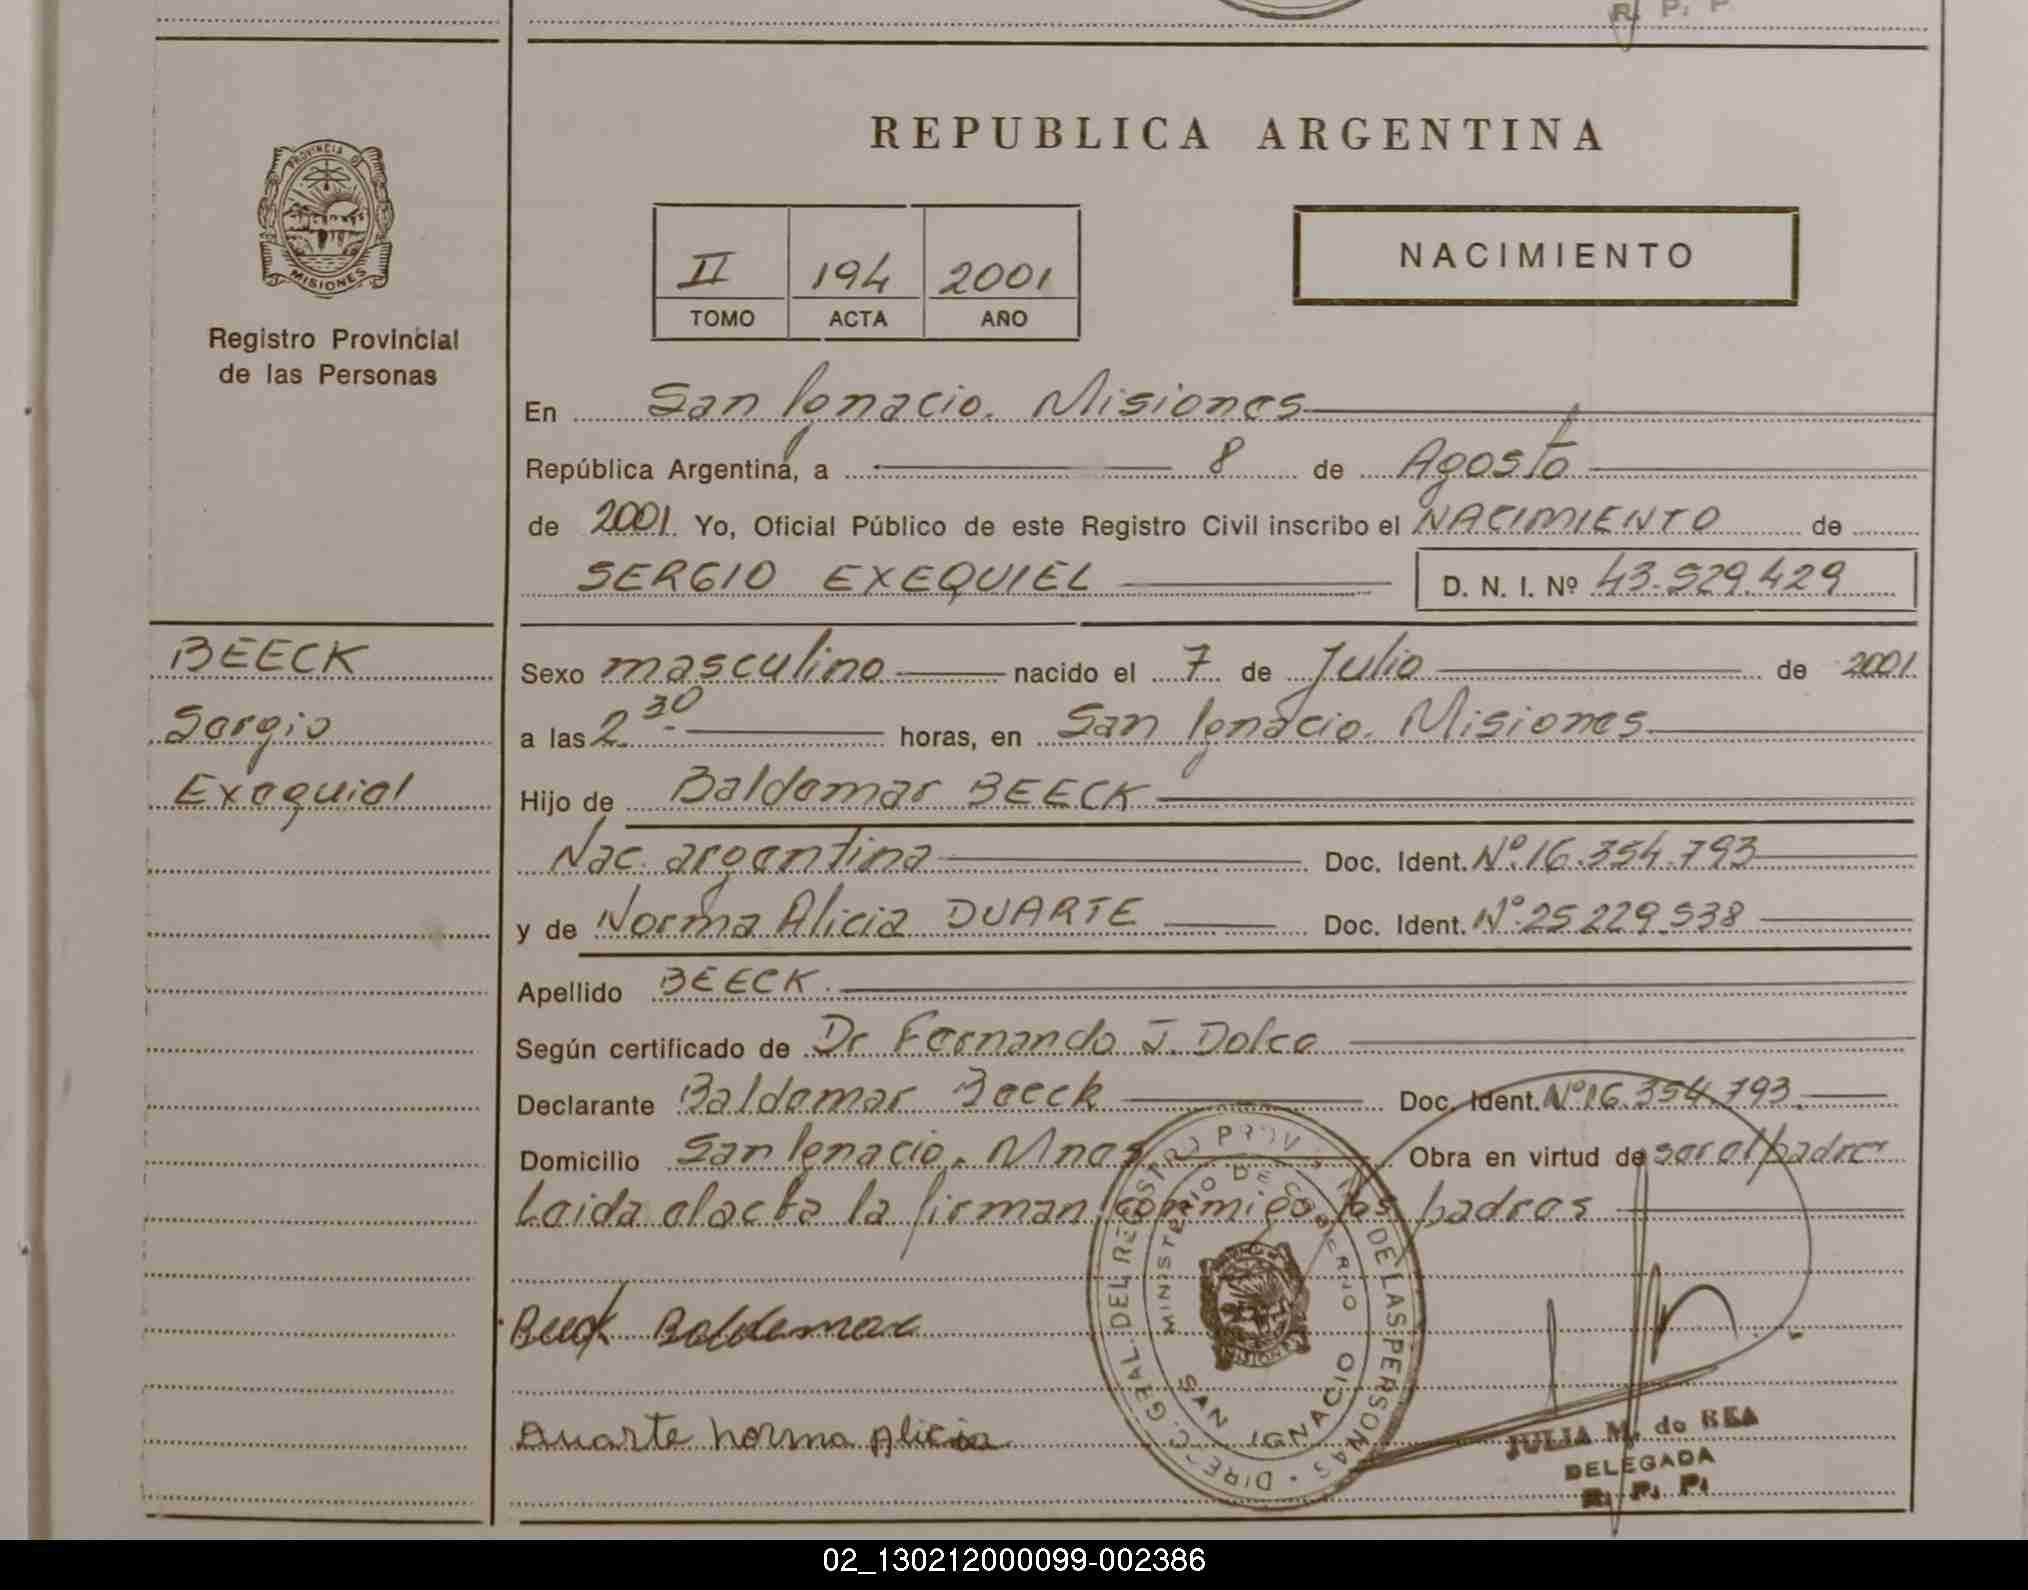 R. P. P
PROVINCIA DE
MISIONES
Registro Provincial
de las Personas
REPUBLICA ARGENTINA
II 194 2001
TOMO ACTA AÑO
NACIMIENTO
En San Ignacio. Misiones
República Argentina, a 8 de Agosto
de 2001. Yo, Oficial Público de este Registro Civil inscribo el NACIMIENTO de
SERGIO EXEQUIEL D. N. I. Nº 43.529.429
BEECK
Sergio
Exequiel
Sexo masculino nacido el 7 de Julio de 2001.
a las 2.30 horas, en San Ignacio. Misiones
Hijo de Baldemar BEECK
Nac. argentina Doc. Ident. Nº.16.354.793
y de Norma Alicia DUARTE Doc. Ident. Nº.25.229.538
Apellido BEECK.
Según certificado de Dr Fernando J. Dolce
Declarante Baldemar Beeck Doc. Ident. Nº16.354.793.
Domicilio San Ignacio. Mnes Obra en virtud de ser el padre
Leida el acta la firman conmigo los padres
Beeck Baldemar
Duarte norma Alicia
DIREC. GRAL. DEL REGISTRO PROV. DE LAS PERSONAS
MINISTERIO DE GOBIERNO
SAN IGNACIO
MISIONES
JULIA M. de REA
DELEGADA
R. P. P.
02_130212000099-002386